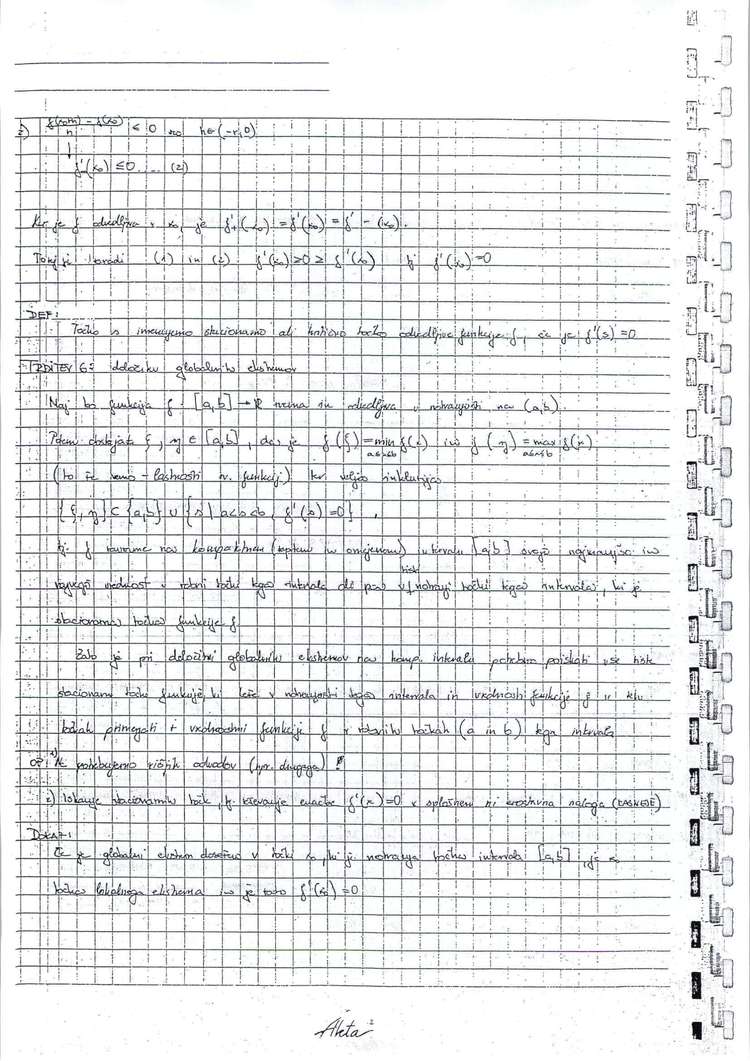 2) f(x₀+h) - f(x₀) / h ≤ 0 za h∈(-r,0)
↓
f'₋(x₀) ≤ 0 ... (2)
Ker je f odvedljiva v x₀, je f'₊(x₀) = f'(x₀) = f'-(x₀).
Torej je zaradi (1) in (2) f'(x₀) ≥ 0 ≥ f'(x₀) tj f'(x₀) = 0
DEF:
Točko s imenujemo stacionarno ali kritično točko odvedljive funkcije f, če je f'(s) = 0
TRDITEV 6: določitev globalnih ekstremov
Naj bo funkcija f : [a,b] → R zvezna in odvedljiva v notranjosti na (a,b)
Potem obstajata ξ, η ∈ [a,b], da je f(ξ) = min f(x) in f(η) = max f(x)
a≤x≤b a≤x≤b
(to že vemo - lastnosti zv. funkcij) ter velja inkluzija
{ξ, η} ⊂ {a,b} ∪ {s | a<s<b, f'(s) = 0}.
tj. f zavzame na kompaktnem (zaprtem in omejenem) intervalu [a,b] svojo najmanjšo in
največjo vrednost v robni točki tega intervala ali pa v tisti notranji točki tega intervala, ki je
stacionarna točka funkcije f
Zato je pri določitvi globalnih ekstremov na komp. intervalu potrebno poiskati vse tiste
stacionarne točke funkcije, ki leže v notranjosti tega intervala in vrednosti funkcije f v teh
točkah primerjati z vrednostmi funkcije f v robnih točkah (a in b) tega intervala
OP: 1) Ne potrebujemo višjih odvodov (npr. drugega) !
2) Iskanje stacionarnih točk, tj. reševanje enačbe f'(x) = 0 v splošnem ni enostavna naloga (KASNEJE)
DOKAZ:
Če je globalni ekstrem dosežen v točki x₀, ki je notranja točka intervala [a,b], je x₀
točka lokalnega ekstrema in je zato f'(x₀) = 0
Akta